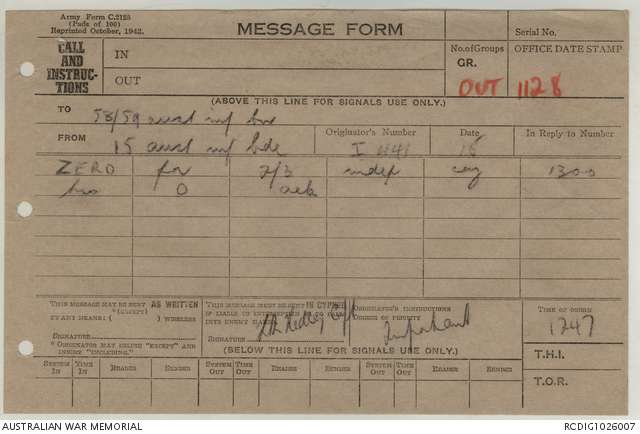 Army Form C.2128
(Pads of 100)
Reprinted October, 1942.
MESSAGE FORM
Serial No.
CALL
AND
INSTRUC-
TIONS
IN
OUT
No. of Groups
GR.
OFFICE DATE STAMP
OUT 1128
(ABOVE THIS LINE FOR SIGNALS USE ONLY.)
TO 58/59 aust inf bn
FROM 15 aust inf bde
Originator's Number
Date
In Reply to Number
15
ZERO for 2/3 indep coy 1300
hrs O ack
THIS MESSAGE MAY BE SENT AS WRITTEN
(EXCEPT)
BY ANY MEANS ( ) WIRELESS
SIGNATURE
"ORIGINATOR MAY DELETE "EXCEPT" AND
INSERT "INCLUDING."
THIS MESSAGE MUST BE SENT IN CYPHER
IF LIABLE TO INTERCEPTION OR TO FALL
INTO ENEMY HANDS.
SIGNATURE
ORIGINATOR'S INSTRUCTIONS
DEGREE OF PRIORITY
Important
TIME OF ORIGIN
1247
T.H.I.
T.O.R.
(BELOW THIS LINE FOR SIGNALS USE ONLY.)
SYSTEM IN TIME IN READER SENDER SYSTEM OUT TIME OUT READER SENDER SYSTEM OUT TIME OUT READER SENDER
AUSTRALIAN WAR MEMORIAL
RCDIG1026007